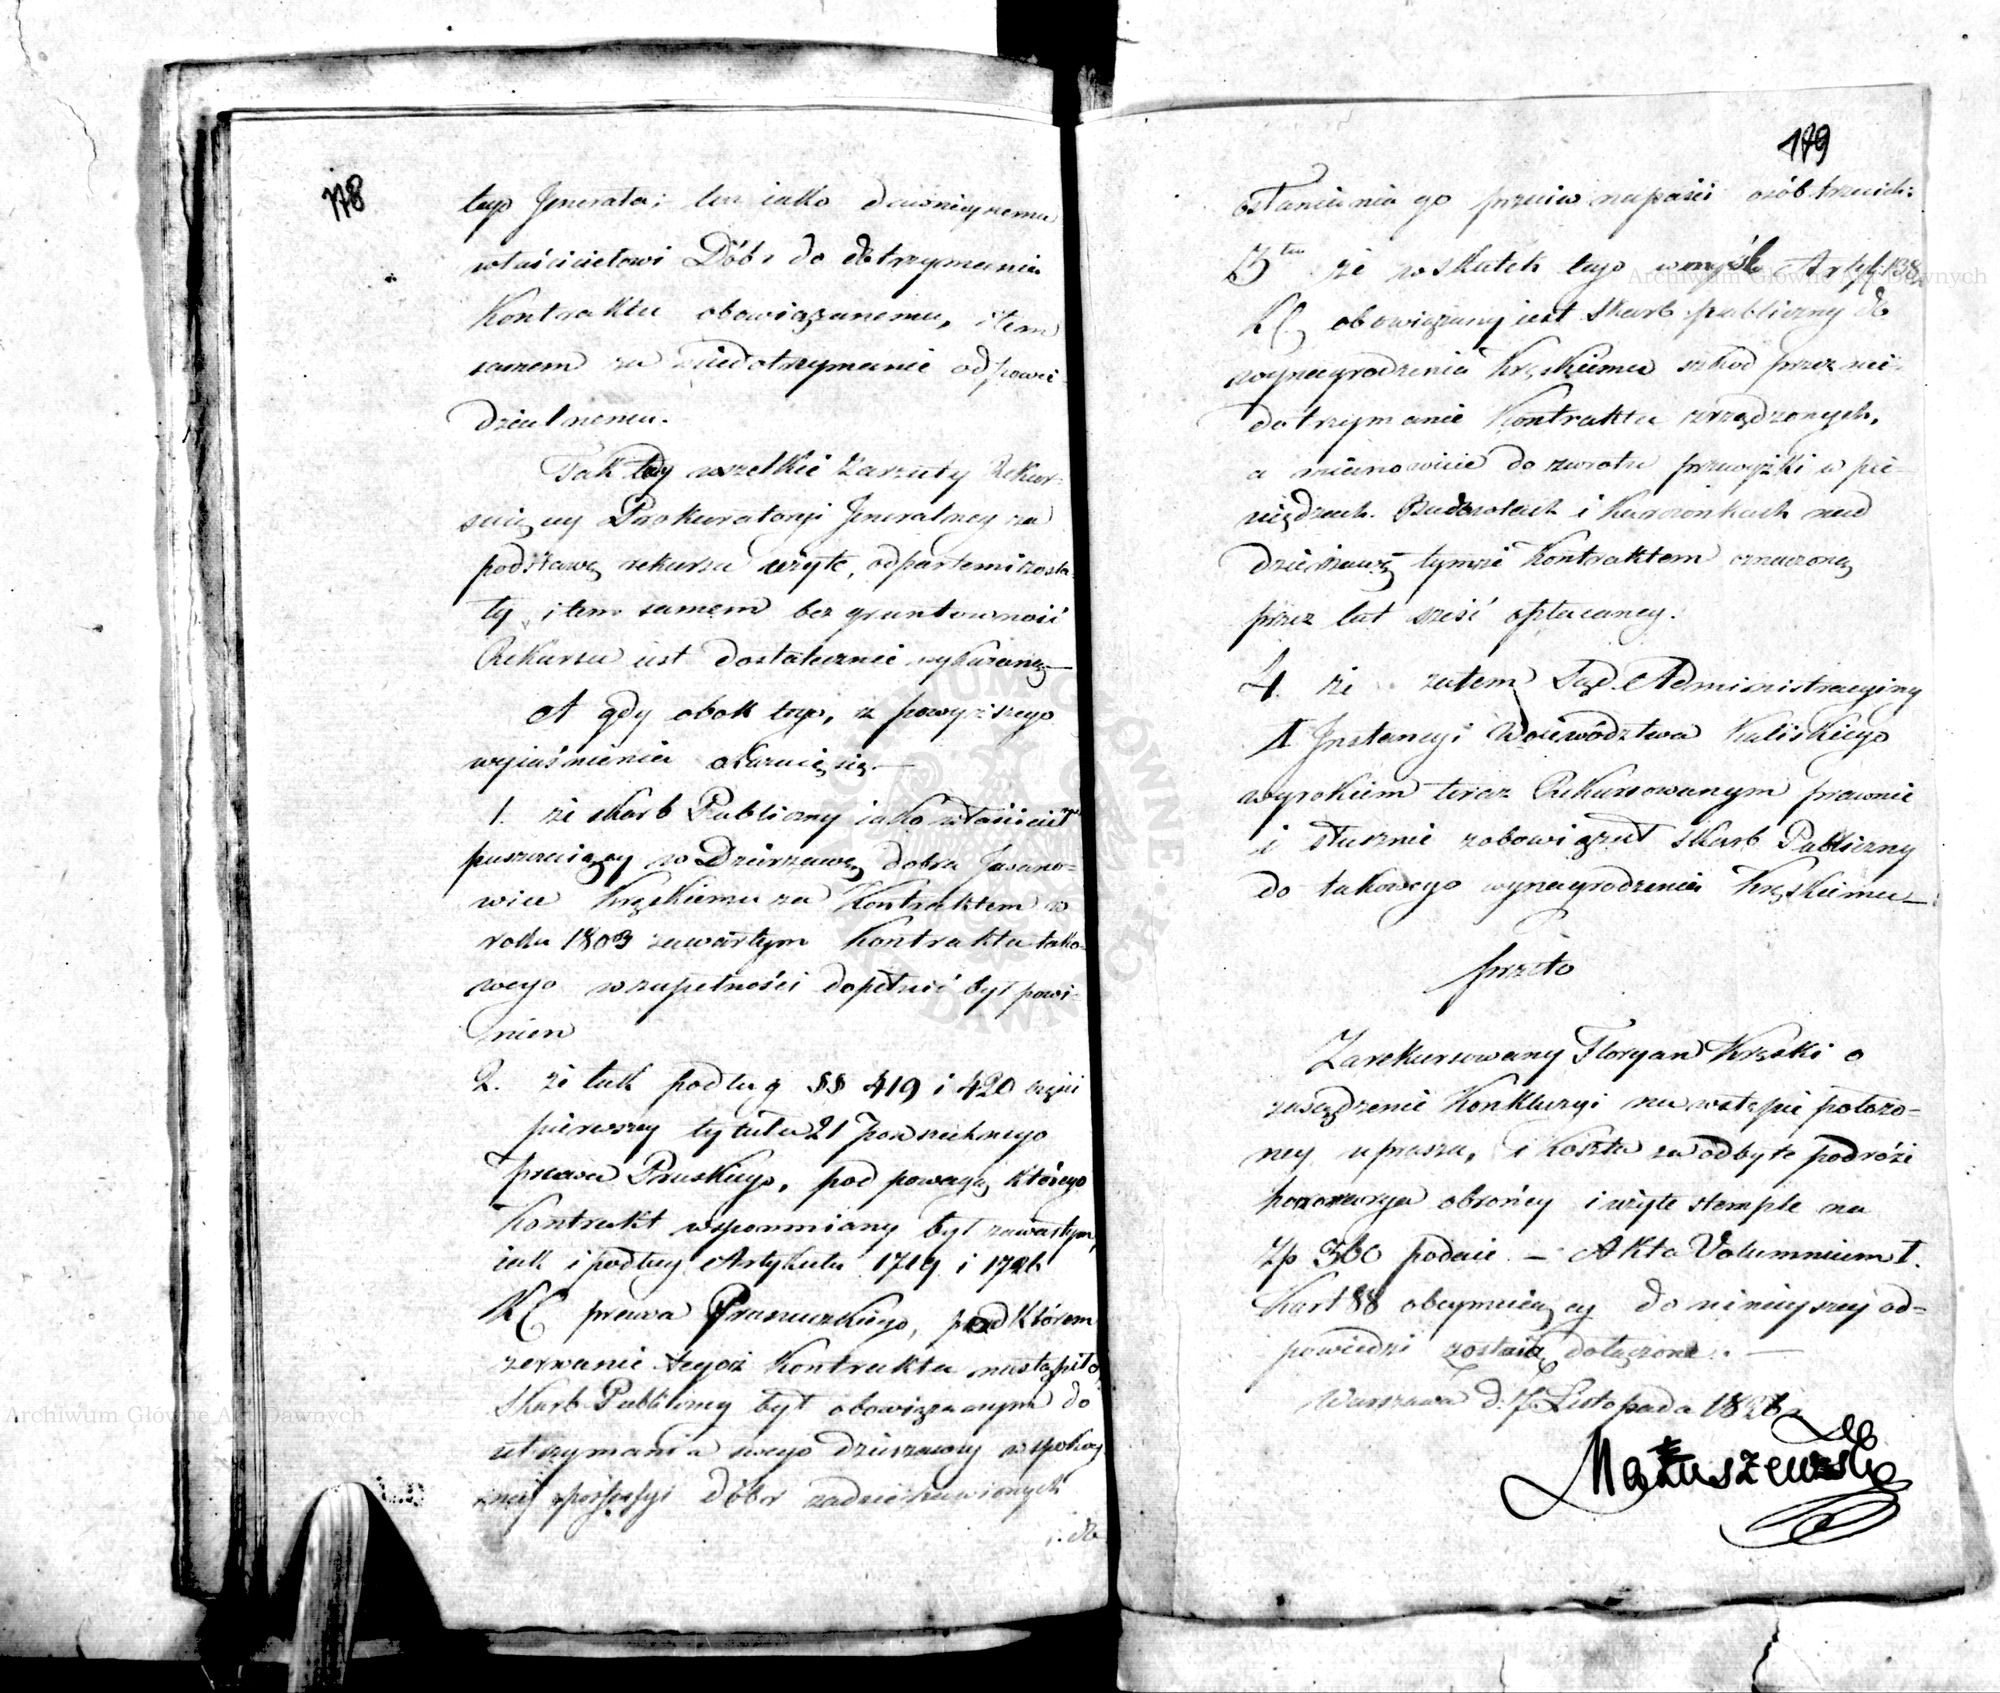 178
tego Jenerała; lecz iako dawnieyszemu
właścicielowi Dóbr do dotrzymania
Kontraktu obowiązanemu, i tem
samem za niedotrzymanie odpowie-
dzialnemu.
Tak tedy wszelkie Zarzuty Rekur-
suiącey Prokuratoryi Jeneralney za
podstawę rekursu użyte, odpartemi zosta-
ły, i tem samem bezgruntowność
Rekursu iest dostatecznie wykazaną —
A gdy obok tego, z powyższego
wyiaśnienia okazuie się —
1. że Skarb Publiczny iako właściciel
puszczaiący w Dzierżawę dobra
wice Kręskiemu za Kontraktem w
roku 1803 zawartym Kontraktu tako-
wego w zupełności dopełnić był powi-
nien
2. że tak podług §§ 419 i 420 części
pierwszey tytułu 21 Powszechnego
prawa Pruskiego, pod powagą którego
Kontrakt wspomniany był zawartym,
iak i podług Artykułu 1719 i 1726
KC prawa Francuzkiego, pod którem
zerwanie tegoż Kontraktu nastąpiło,
Skarb Publiczny był obowiązanym do
utrzymania swego dzierżawcy w spokoy-
ney possessyi dóbr zadzierżawionych
i do
179
osłanienia go przeciw napaści osób trzecich:
3tio że w skutek tego w myśl Artykł: 1382
KC obowiązany iest Skarb publiczny do
wynagrodzenia Kręskiemu szkód przez nie-
dotrzymanie Kontraktu zrządzonych,
a mianowicie do zwrotu przewyżki w pie-
niądzach. i nad
dzierżawę tymże Kontraktem oznaczoną
przez lat sześć opłacaney.
4. że zatem Sąd Administracyiny
I Instancyi Woiewództwa Kaliskiego
wyrokiem teraz Rekursowanym prawnie
i słusznie zobowiązał Skarb Publiczny
do takowego wynagrodzenia Kręskiemu —
przeto
Zarekursowany Floryan Kręski o
zasądzenie Konkluzyi na wstępie położo-
ney uprasza, i koszta za odbyte podróże
obrońcy i użyte stemple na
Zp 360 podaie. — Akta Volumnium I.
Kart 88 obeymuiący do ninieyszey od-
powiedzi zostaią dołączone. —
Warszawa d. 7 Listopada 1826 r.
Matuszewski
Archiwum Główne Akt Dawnych
Archiwum Główne Akt Dawnych